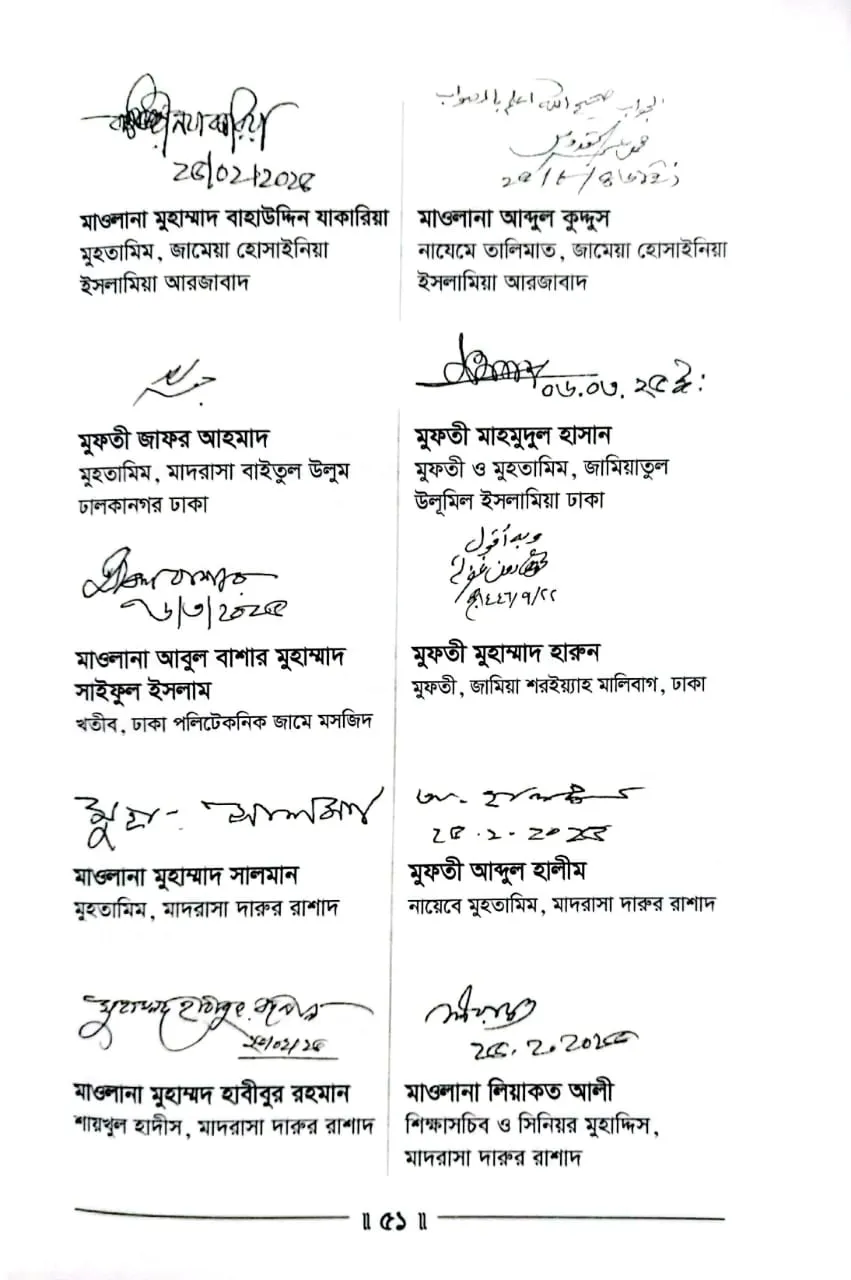 ২৫/০২/২০২৫
মাওলানা মুহাম্মাদ বাহাউদ্দিন যাকারিয়া
মুহতামিম, জামেয়া হোসাইনিয়া
ইসলামিয়া আরজাবাদ
الجواب صحيح الله اعلم بالصواب
মাওলানা আব্দুল কুদ্দুস
নাযেমে তালিমাত, জামেয়া হোসাইনিয়া
ইসলামিয়া আরজাবাদ
মুফতী জাফর আহমাদ
মুহতামিম, মাদরাসা বাইতুল উলুম
ঢালকানগর ঢাকা
০৬.০৩.২৫ ইং
মুফতী মাহমুদুল হাসান
মুফতী ও মুহতামিম, জামিয়াতুল
উলূমিল ইসলামিয়া ঢাকা
২৬/৩/২০২৫
মাওলানা আবুল বাশার মুহাম্মাদ
সাইফুল ইসলাম
খতীব, ঢাকা পলিটেকনিক জামে মসজিদ
وبه أقول
মুফতী মুহাম্মাদ হারুন
মুফতী, জামিয়া শরইয়্যাহ মালিবাগ, ঢাকা
মুহা- সালমান
মাওলানা মুহাম্মাদ সালমান
মুহতামিম, মাদরাসা দারুর রাশাদ
২৫.২.২০২৫
মুফতী আব্দুল হালীম
নায়েবে মুহতামিম, মাদরাসা দারুর রাশাদ
মুহাম্মদ হাবীবুর রহমান
২৫/০২/২৫
মাওলানা মুহাম্মদ হাবীবুর রহমান
শায়খুল হাদীস, মাদরাসা দারুর রাশাদ
২৫.২.২০২৫
মাওলানা লিয়াকত আলী
শিক্ষাসচিব ও সিনিয়র মুহাদ্দিস,
মাদরাসা দারুর রাশাদ
॥ ৫১ ॥